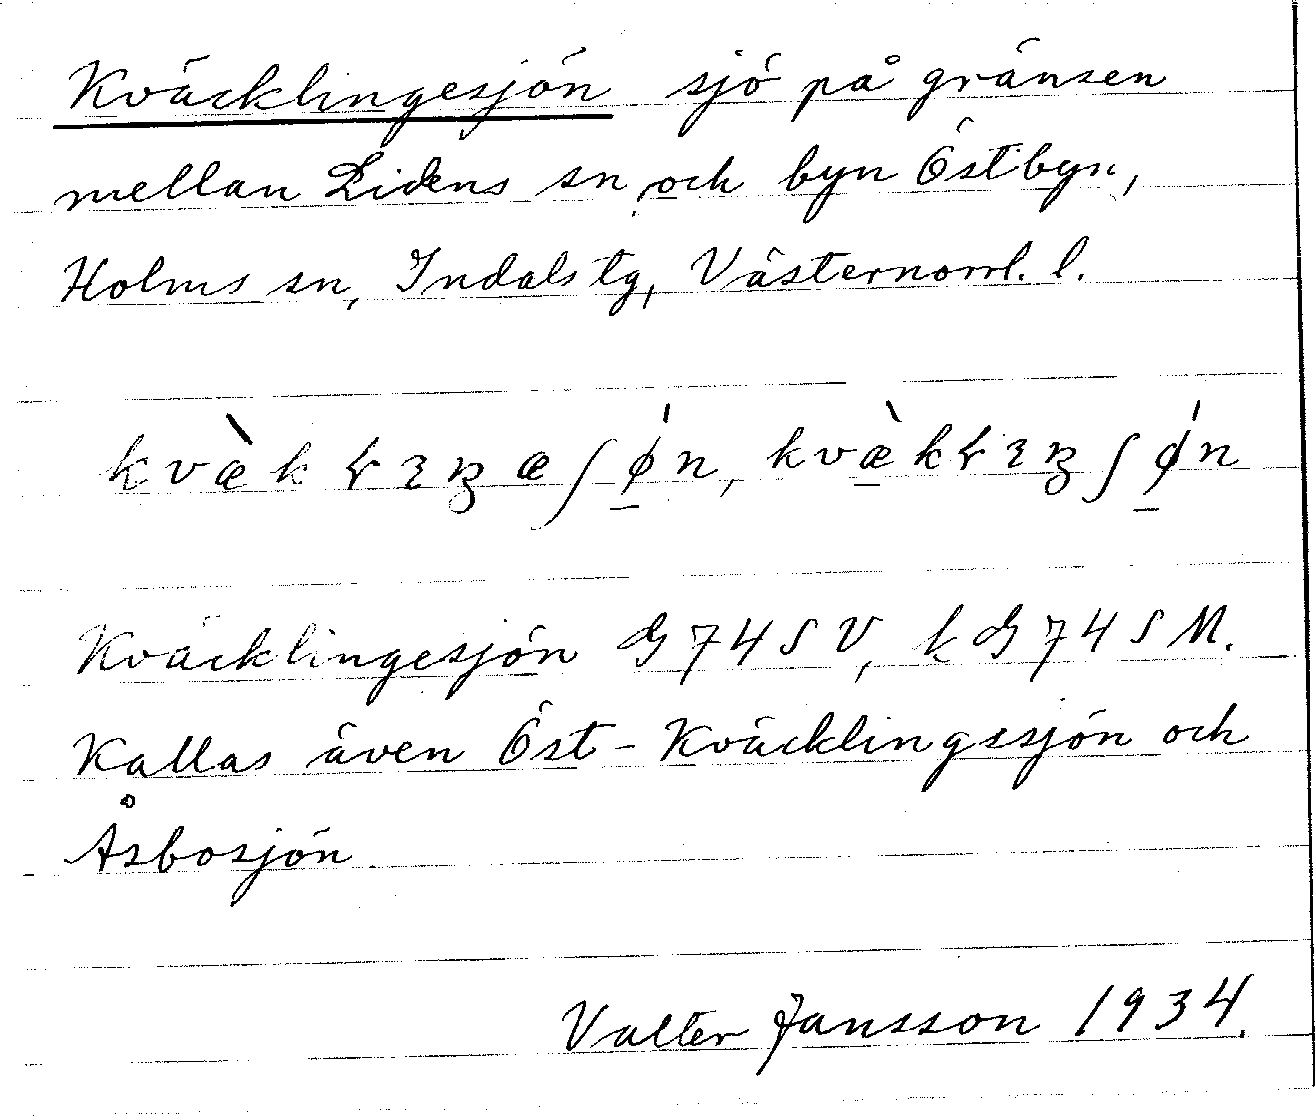 Kväcklingesjön sjö på gränsen
mellan Lidens sn och byn Östbyn,
Holms sn, Indals tg, Västernorrl. l.
Kväcklingesjön G74SV, k G74SM.
Kallas även Öst-Kväcklingssjön och
Åsbosjön
Valter Jansson 1934.